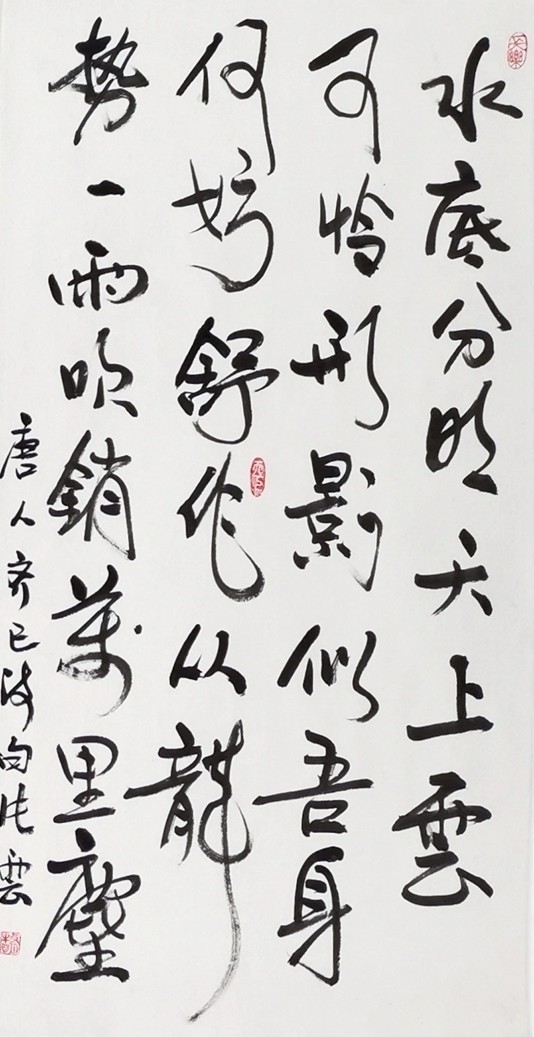 水底分明天上雲
可怜形影似吾身
何妨舒作從龍
勢一雨吹銷萬里塵
唐人齐己诗句
雲